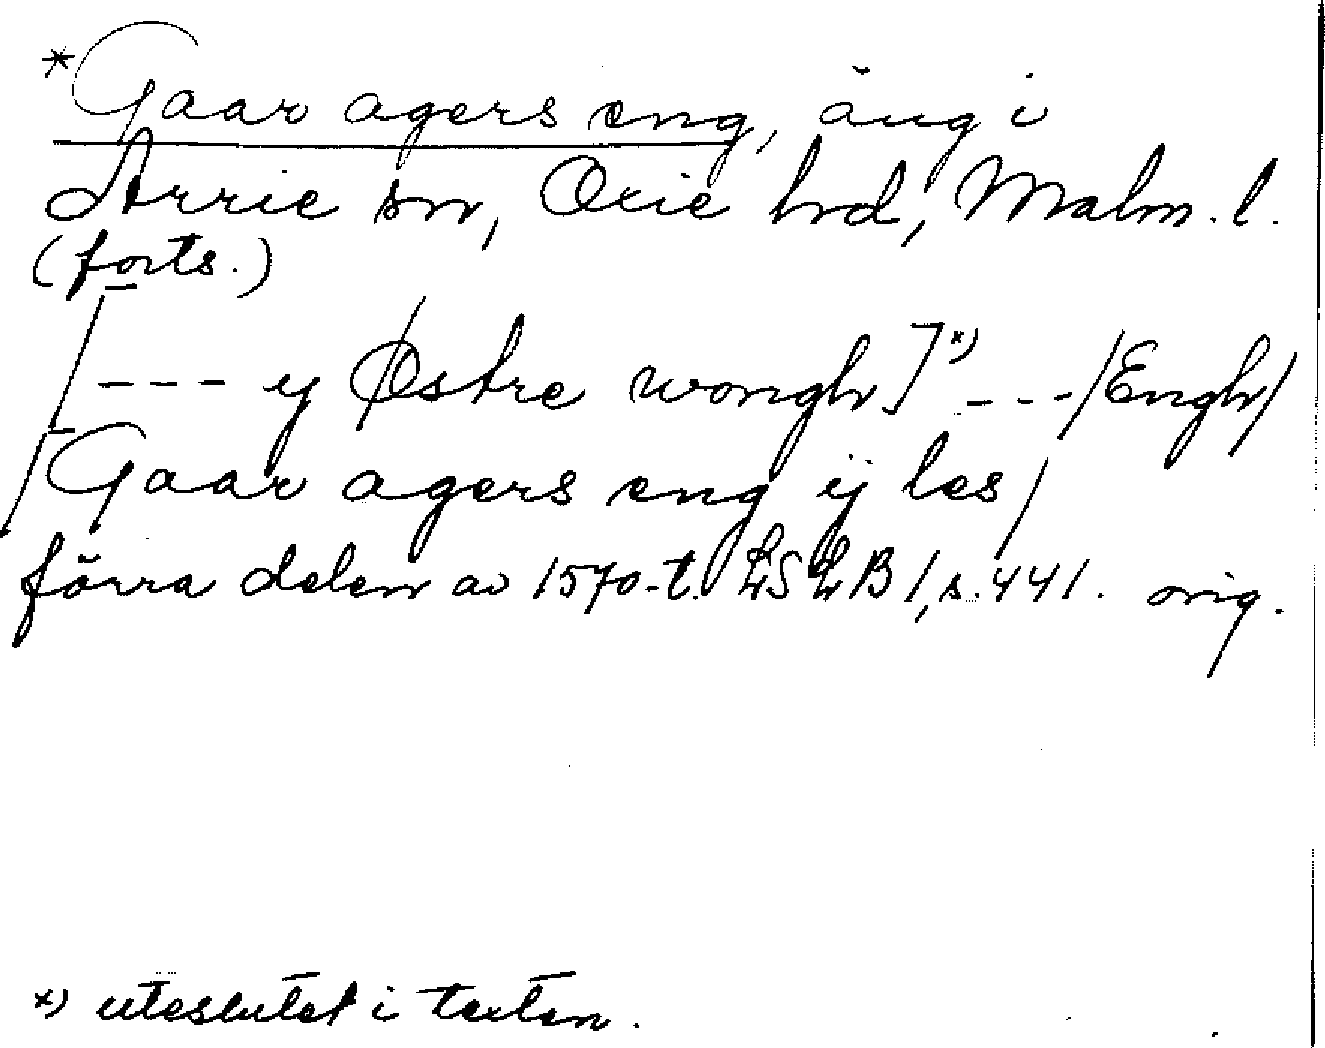 *Gaar agers eng, äng i
Arrie sn, Oxie hd, Malm. l.
(forts.)
[--- y Østre wongh]*) ---/Engh/
/Gaar agers eng ij les/
förra delen av 1570-t. LSLB 1, s. 441. orig.
*) uteslutet i texten.